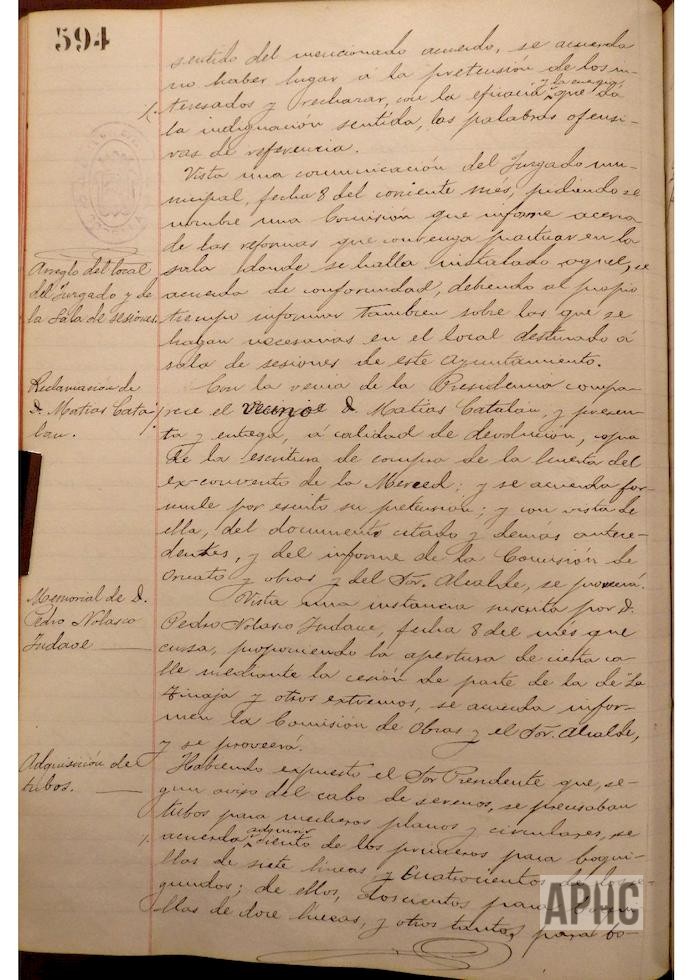 594
sentido del mencionado acuerdo, se acuerda
no haber lugar á la pretensión de los in-
teresados y rechazar, con la eficacia y la energia que da
la indignación sentida, las palabras ofensi-
vas de referencia.
Vista una comunicación del Juzgado mu-
nicipal, fecha 8 del corriente mes, pidiendo se
nombre una Comisión que informe acerca
de las reformas que convenga practicar en la
Arreglo del local
del Juzgado y de
la Sala de sesiones.
sala donde se halla instalado aquel, se
acuerda de conformidad, debiendo al propio
tiempo informar tambien sobre las que se
hagan necesarias en el local destinado á
sala de sesiones de este Ayuntamiento.
Reclamación de
D. Matias Cata-
lan.
Con la venia de la Presidencia compa-
rece el vecino D. Matias Catalán, y presen-
ta y entrega, á calidad de devolución, copia
de la escritura de compra de la huerta del
ex-convento de la Merced; y se acuerda for-
mule por escrito su pretension; y con vista de
ella, del documento citado y demás antece-
dentes, y del informe de la Comisión de
Ornato y obras y del Sor. Alcalde, se proveerá.
Memorial de D.
Pedro Nolasco
Vista una instancia suscrita por D.
Pedro Nolasco fecha 8 del mes que
cursa, proponiendo la apertura de cierta ca-
lle mediante la cesión de parte de la de "La
Tinaja" y otros extremos, se acuerda infor-
men la Comisión de Obras y el Sor. Alcalde,
y se proveerá.
Adquisición de
tubos.
Habiendo expuesto el Sor Presidente que, se-
gun aviso del cabo de serenos, se precisaban
tubos para mecheros planos y circulares, se
acuerda adquirir ciento de los primeros para boqui-
llas de siete lineas y cuatrocientos de los se-
gundos; de ellos, doscientos para
llas de doce lineas, y otros tantos para bo-
APHC